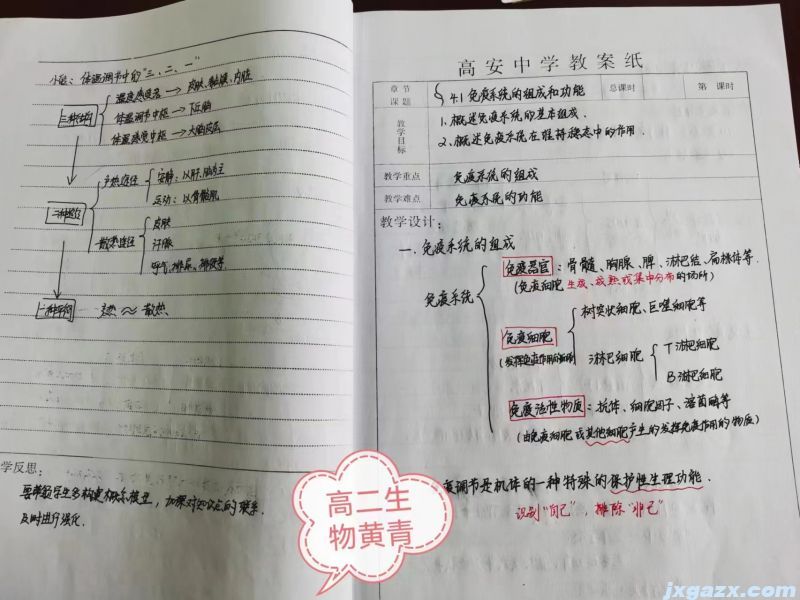 小结：体温调节中的"三、二、一"
三种结构
温度感受器 → 皮肤、黏膜、内脏
体温调节中枢 → 下丘脑
体温感觉中枢 → 大脑皮层
二种途径
产热途径
安静：以肝、脑为主
运动：以骨骼肌
散热途径
皮肤
汗腺
呼气、排尿、排便等
一种平衡
产热 ≈ 散热
学反思：
要带领学生多构建概念模型，加深对知识点的联系
及时进行强化.
高安中学教案纸
章节
课题
4.1 免疫系统的组成和功能
总课时
第 课时
教学目标
1、概述免疫系统的基本组成.
2、概述免疫系统在维持稳态中的作用.
教学重点
免疫系统的组成
教学难点
免疫系统的功能
教学设计：
一. 免疫系统的组成
免疫系统
免疫器官：骨髓、胸腺、脾、淋巴结、扁桃体等.
(免疫细胞生成、成熟或集中分布的场所)
免疫细胞
(发挥免疫作用的细胞)
树突状细胞、巨噬细胞等
淋巴细胞
T淋巴细胞
B淋巴细胞
免疫活性物质：抗体、细胞因子、溶菌酶等
(由免疫细胞或其他细胞产生的发挥免疫作用的物质)
疫调节是机体的一种特殊的保护性生理功能.
识别"自己"，排除"非己"
高二生
物黄青
jxgazx.com